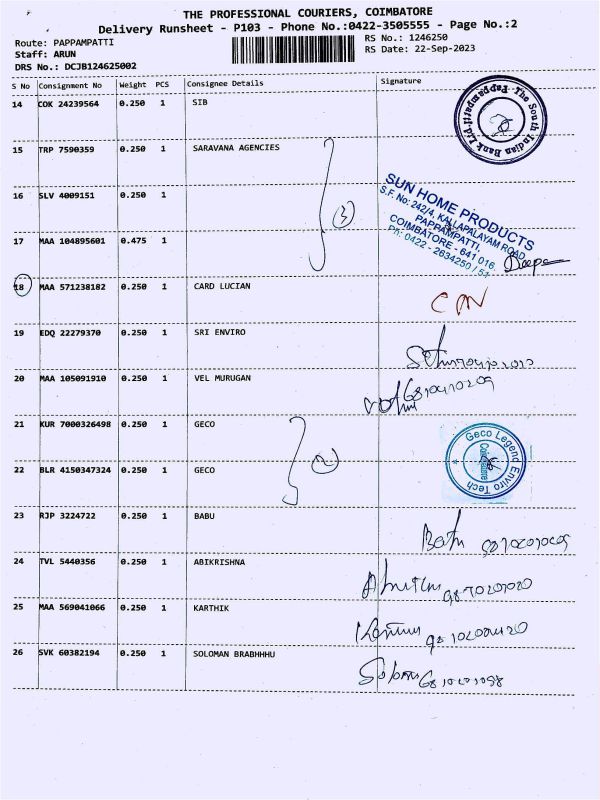 THE PROFESSIONAL COURIERS, COIMBATORE
Delivery Runsheet - P103 - Phone No.:0422-3505555 - Page No.:2
Route: PAPPAMPATTI
RS No.: 1246250
Staff: ARUN
RS Date: 22-Sep-2023
DRS No.: DCJB124625002
S No Consignment No Weight PCS Consignee Details Signature
14 COK 24239564 0.250 1 SIB
The South Indian Bank Ltd Pappampatti
15 TRP 7590359 0.250 1 SARAVANA AGENCIES
16 SLV 4009151 0.250 1
(3)
SUN HOME PRODUCTS
S.F. No: 242/4, KALLAPALAYAM ROAD
PAPPAMPATTI,
COIMBATORE - 641 016.
Ph: 0422 - 2634250 / 51
17 MAA 104895601 0.475 1
18 MAA 571238182 0.250 1 CARD LUCIAN
19 EDQ 22279370 0.250 1 SRI ENVIRO
20 MAA 105091910 0.250 1 VEL MURUGAN
21 KUR 7000326498 0.250 1 GECO
(2)
Geco Legend Enviro Tech
Coimbatore
22 BLR 4150347324 0.250 1 GECO
23 RJP 3224722 0.250 1 BABU
24 TVL 5440356 0.250 1 ABIKRISHNA
25 MAA 569041066 0.250 1 KARTHIK
26 SVK 60382194 0.250 1 SOLOMAN BRABHHHU